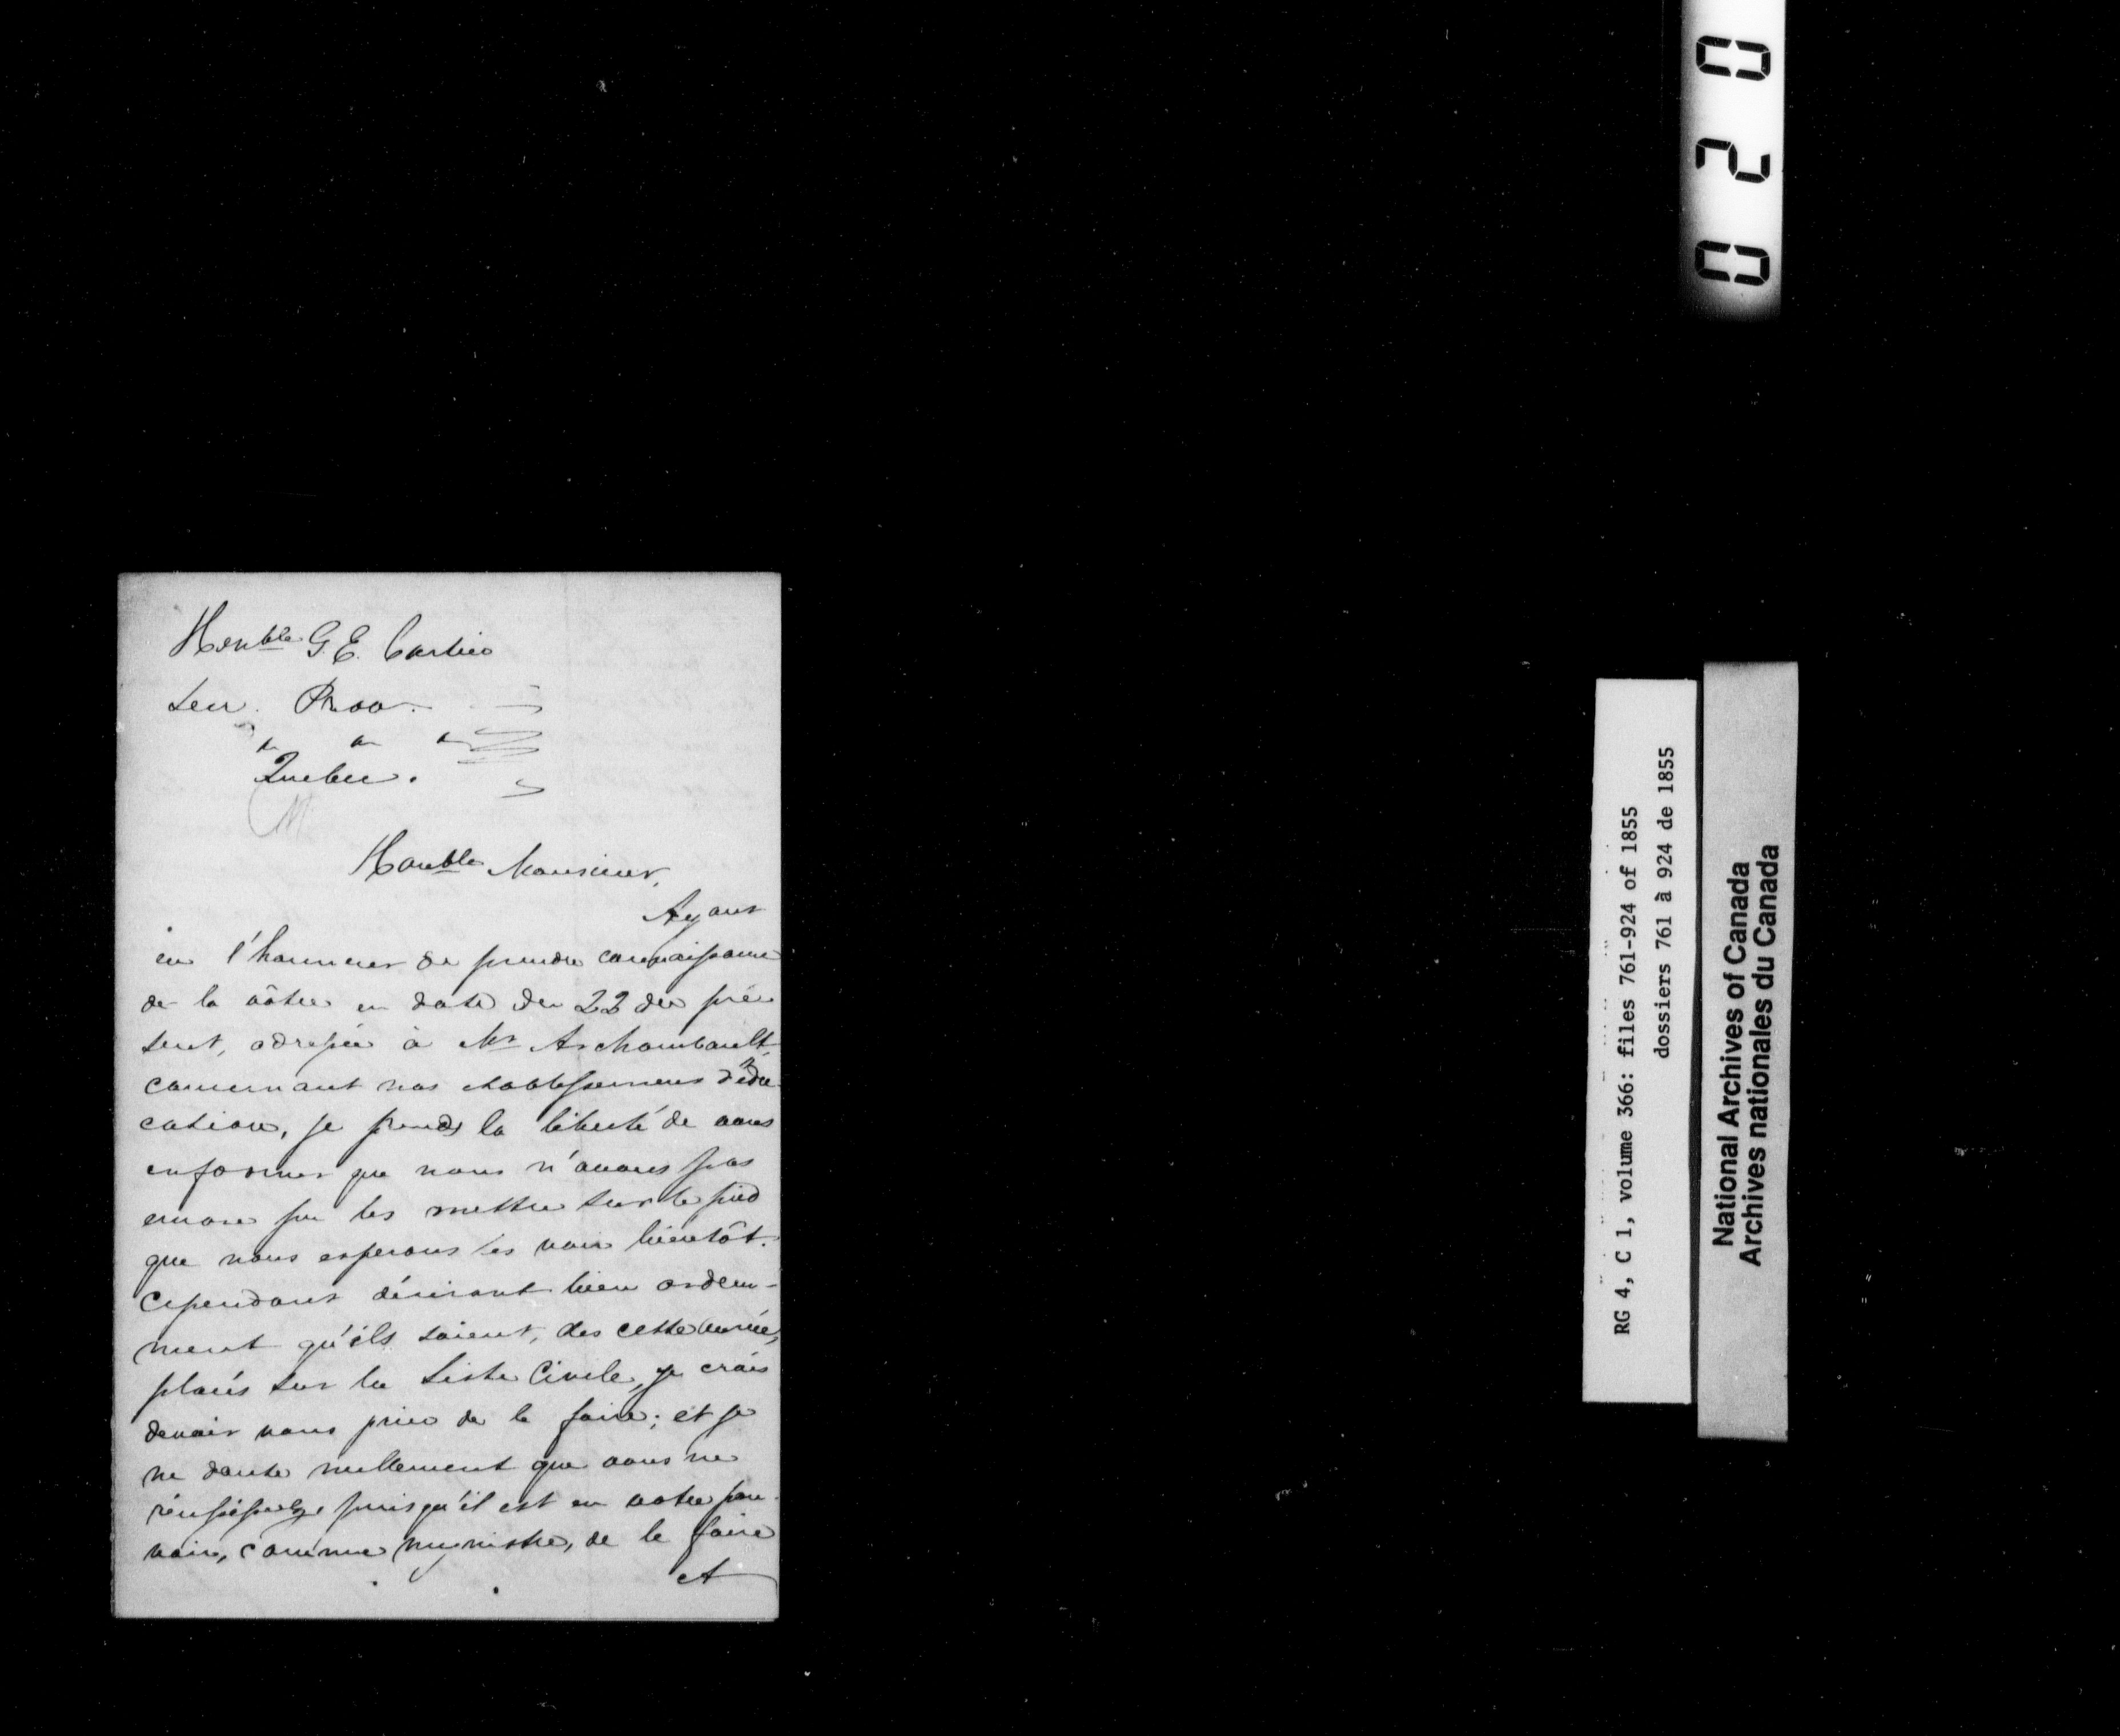 Honble G. E. Cartier
Secr. Prov.
&c &c &c
Quebec.
Honble Monsieur,
Ayant
eu l'honneur de prendre connaissance
de la vôtre en date du 22 du pré-
sent, adressée à Mr Archambault,
concernant nos etablissemens d'édu-
cation, je prends la liberté de vous
informer que nous n'avons pas
encore pu les mettre sur le pied
que nous esperons les voir bientôt.
Cependant désirant bien ardem-
ment qu'ils soient, des cette année,
placés sur la Liste Civile, je crois
devoir vous prier de le faire; et je
ne doute nullement que vous ne
réussissiez puisqu'il est en votre pou-
voir, comme ministre, de le faire
et
0 2 0
RG 4, C 1, volume 366: files 761-924 of 1855
dossiers 761 à 924 de 1855
National Archives of Canada
Archives nationales du Canada